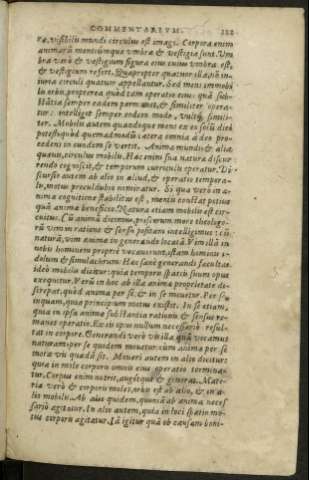 COMMENTARIVM.
ra, visibilis mundi circulus est imago. Corpora enim
animarū mentiúmque vmbræ & vestigia sunt. Vm
bra verò & vestigium figura eius cuius vmbra est,
& vestigium refert. Quapropter quatuor illa, iniuria
circuli quatuor appellantur. Sed mens immobi
lis orbis, propterea quòd tam operatio eius quã sub
stãtia semper eadem permanet, & similiter opera-
tur: intelligit semper eodem modo, vultq́; simili-
ter. Mobilis autem quandoque mens ex eo solū dici
potest, quòd quemadmodū cætera omnia à deo pro-
cedens in eundem se vertit. Anima mundi & alia
quæuis, circulus mobilis. Hæc enim sua natura discur
rendo cogoscit, & temporum curriculis operatur. Di
scursio autem ab alio in aliud, & operatio tempora-
lis, motus proculdubio nominatur. Si qua verò in a-
nima cognitione stabilitas est, mentis constat potius
quã anima beneficio. Natura etiam mobilis est cir-
cuitus. Cū animã dicimus, priscorum more theologo-
rū vim in ratione & sensu positam intelligimus: cū
naturã, vim animæ in generando locatã. Vim illã in
nobis hominem propriè vocauerunt, istam hominis i-
dolum & simulachrum. Hæc sanè generandi facultas
ideo mobilis dicitur: quia temporis spatio suum opus
exequitur. Verū in hoc ab illa animæ proprietate di-
screpat, quòd anima per se & in se mouetur. Per se
inquam, quia principium motus existit. In se etiam,
quia in ipsa animæ substantia rationis & sensus re-
manet operatio. Ex eis opus nullum necessariò resul-
tat in corpore. Generandi verò vis illa quã vocamus
naturam, per se quidem mouetur: cùm animæ per se
motæ vis quædã sit. Moueri autem in alio dicitur:
quia in mole corporis omnis eius operatio termina-
tur. Corpus enim nutrit, auget & generat. Mate-
ria verò & corporis moles, orbis est ab alio, & in a-
lio mobilis. Ab alio quidem, quoniã ab anima neces
sariò agitatur. In alio autem, quia in loci spatio mo-
tus corporis agitatur. Iã igitur quã ob causam boni-